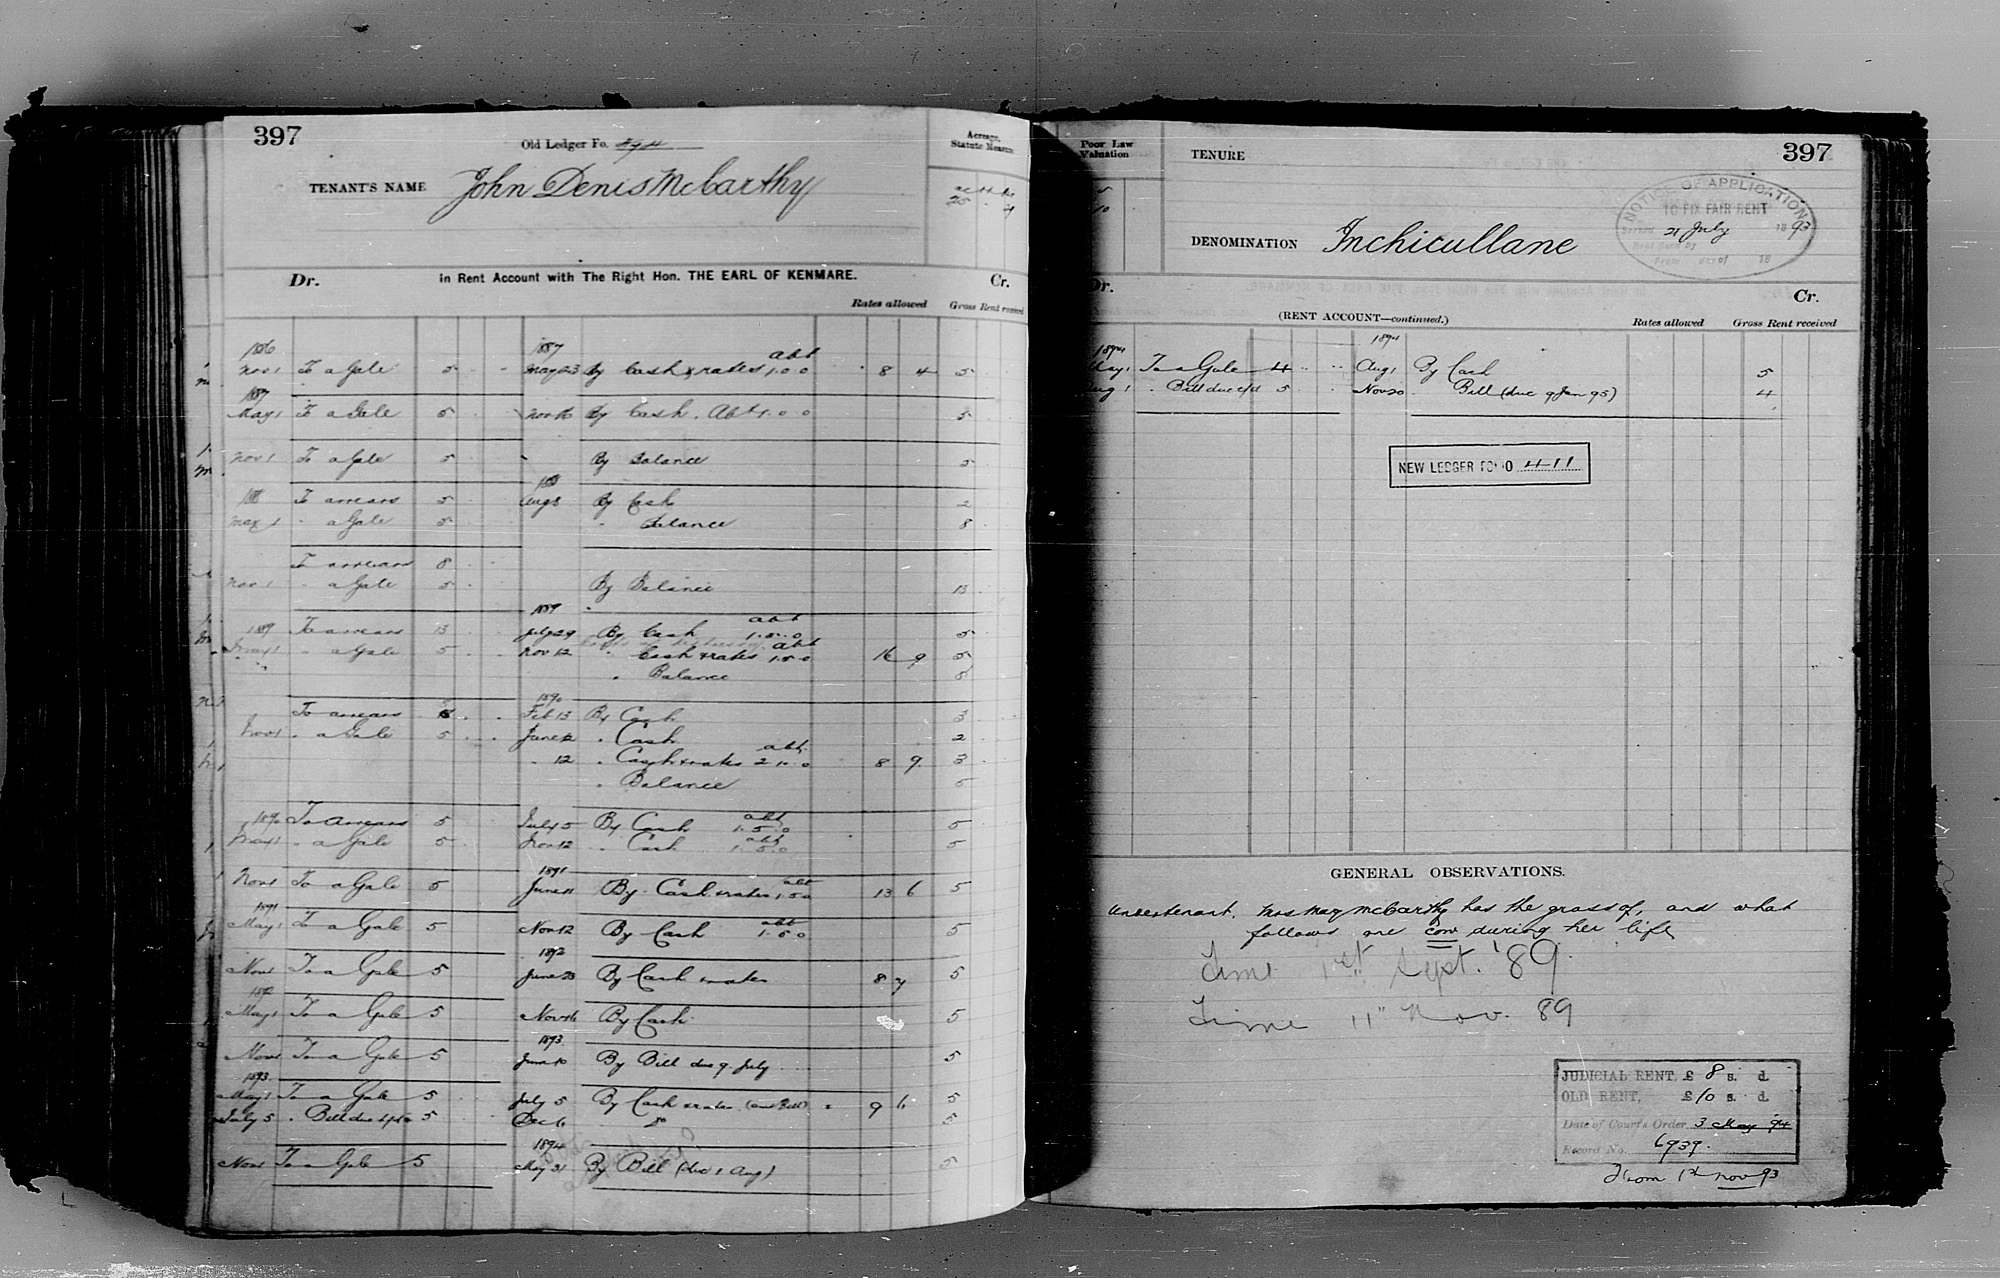 397
Old Ledger Fo.
Acreage, Statute Measure
TENANT'S NAME John Denis McCarthy
Dr. in Rent Account with The Right Hon. THE EARL OF KENMARE. Cr.
Rates allowed Gross Rent received
1886 1887 abt
Nov 1 To a Gale 5 May 23 By Cash & rates 1.0.0 8 4 5
1887
May 1 To a Gale 5 Nov 16 By Cash. Abt 1.0.0 5
Nov 1 To a Gale 5 By Balance 5
1888 1888
To arrears 5 Aug 8 By Cash 2
May 1 " a Gale 5 " Balance 8
To arrears 8
Nov 1 " a Gale 5 By Balance 13
1889 1889 abt
To arrears 13 July 29 By Cash 1.5.0 5
abt
May 1 " a Gale 5 Nov 12 " Cash & rates 1.5.0 16 9 5
" Balance
1890
To arrears 8 Feb 13 By Cash 3
Nov 1 " a Gale 5 June 12 " Cash 2
abt
" 12 " Cash & rates 2.10.0 8 9 3
" Balance 5
1890 abt
To arrears 5 July 5 By Cash 1.5.0 5
abt
May 1 " a Gale 5 Nov 12 " Cash 1.5.0 5
1891 abt
Nov 1 To a Gale 5 June 11 By Cash & rates 1.5.0 13 6 5
1891 abt
May 1 To a Gale 5 Nov 12 By Cash 1.5.0 5
1892
Nov 1 To a Gale 5 June 23 By Cash & rates 8 7 5
1892
May 1 To a Gale 5 Nov 16 By Cash 5
1893
Nov 1 To a Gale 5 June 10 By Bill due 9 July 5
1893
May 1 To a Gale 5 July 5 By Cash & rates (and Bill) 9 6 5
July 5 " Bill due 5 Dec 6 5
1894
Nov 1 To a Gale 5 May 31 By Bill (due 1 Aug) 5
Poor Law Valuation
TENURE
397
NOTICE OF APPLICATION
TO FIX FAIR RENT
Served 21 July 1893
Rent fixed by
From day of 18
DENOMINATION Inchicullane
Dr. Cr.
(RENT ACCOUNT—continued.)
Rates allowed Gross Rent received
1894 1894
May 1 To a Gale 4 Aug 1 By Cash 5
Aug 1 " Bill due 5 Nov 20 " Bill (due 9 Jan 95) 4
NEW LEDGER FOLIO 411
GENERAL OBSERVATIONS.
Undertenant. Mrs Mary McCarthy has the grass of, and what
follows one cow during her life
Time 1st Sept. '89
Time 11" Nov. 89
JUDICIAL RENT, £ 8 s. d.
OLD RENT, £ 10 s. d.
Date of Court's Order 3 May 94
Record No. 6939
From 1st Nov 93